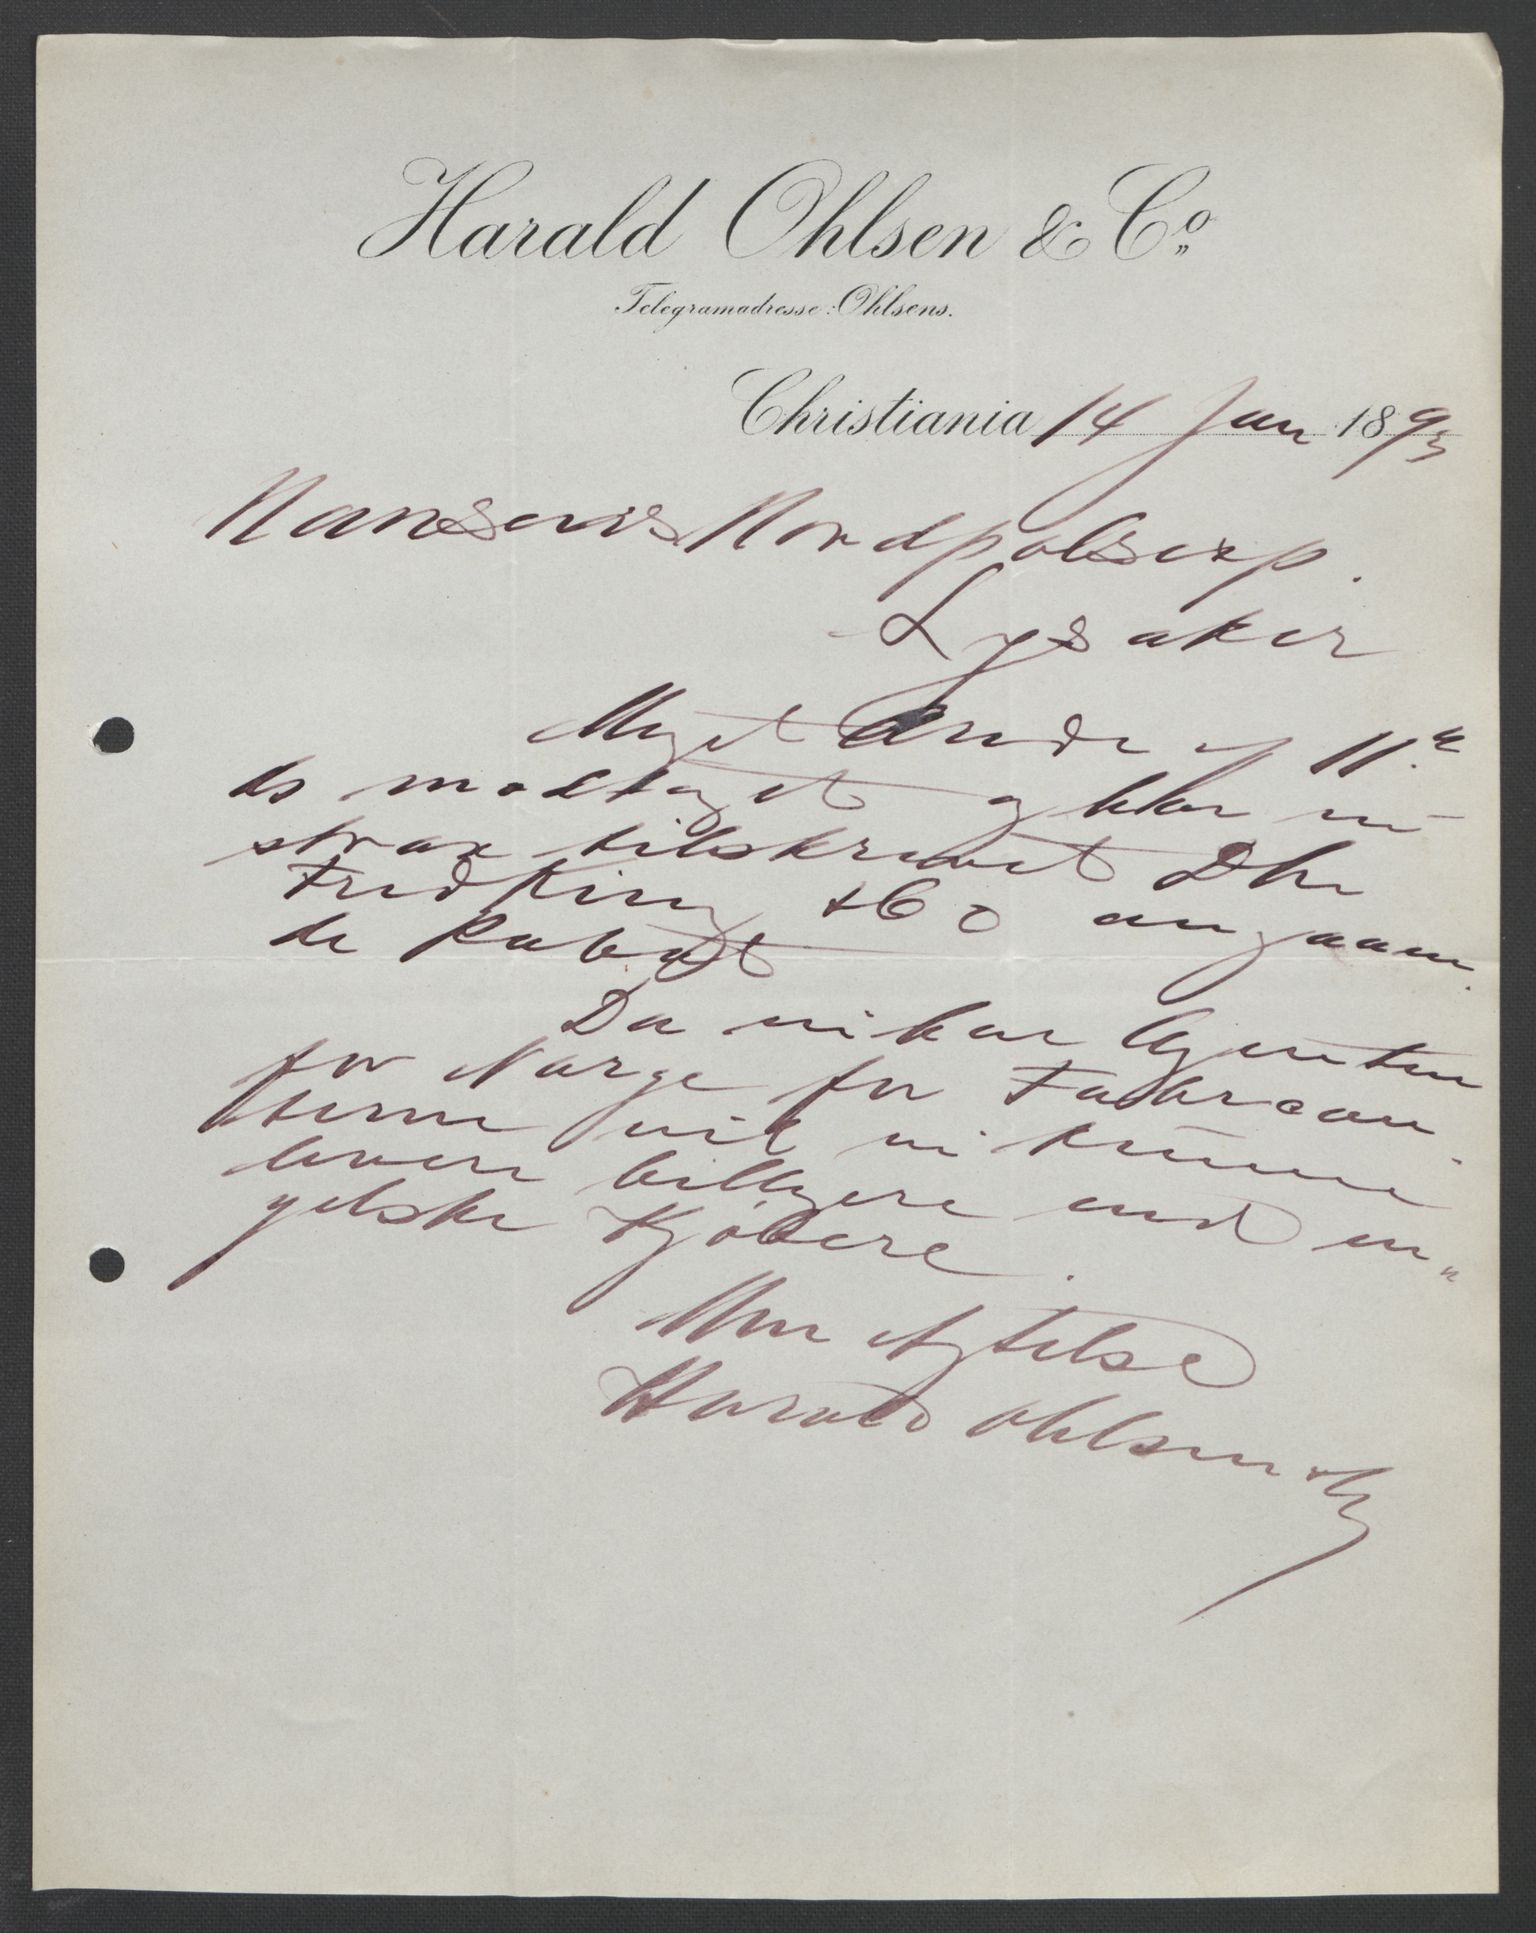 Harald Ohlsen & Co.
Telegramadresse: Ohlsens.
Christiania 14 Jan 1893
Nansens Nordpolsexp.
Lysaker
Meget ærede af 11te
ds modtaget og har vi
strax tilskrevet Dhr
Fred King & Co angaaen
de Rabat
Da vi har Agenten
for Norge for Fabrean
terne vil vi kunne
levere billigere end en„
gelske Kjøbere.
Med Agtelse
Harald Ohlsen & Co